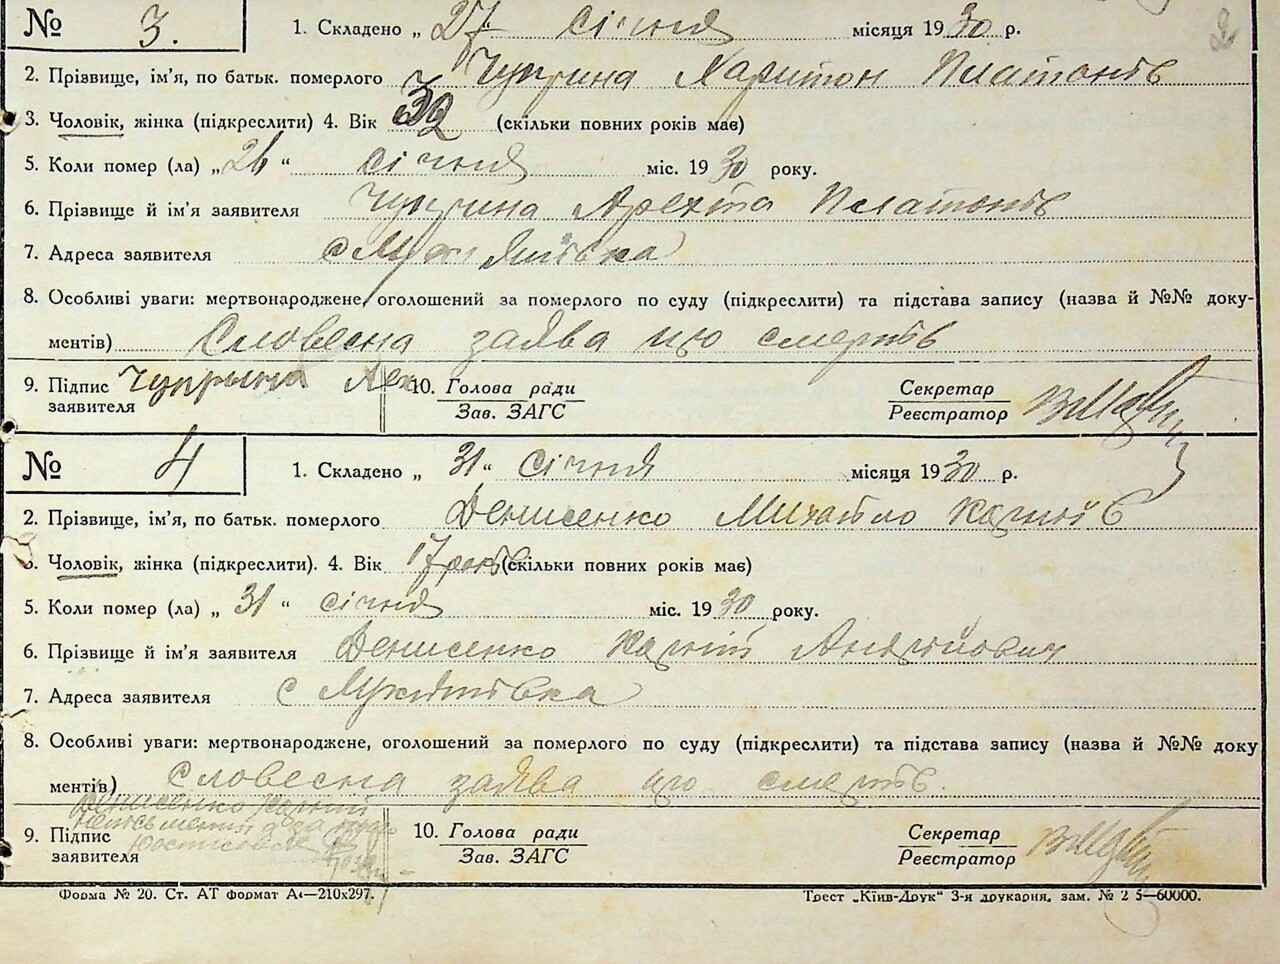 № 3. 1. Складено „27“ січня місяця 1930 р.
2. Прізвище, ім'я, по батьк. померлого Чуприна Харитон Платонів
3. Чоловік, жінка (підкреслити) 4. Вік 32 (скільки повних років має)
5. Коли помер (ла) „26“ січня міс. 1930 року.
6. Прізвище й ім'я заявителя Чуприна Архіта Платонів
7. Адреса заявителя с
8. Особливі уваги: мертвонароджене, оголошений за померлого по суду (підкреслити) та підстава запису (назва й №№ доку-
ментів) Словесна заява про смерть
9. Підпис Чуприна 10. Голова ради Секретар
заявителя Зав. ЗАГС Реєстратор
№ 4 1. Складено „31“ Січня місяця 1930 р.
2. Прізвище, ім'я, по батьк. померлого Денисенко Михайло Корніїв
3. Чоловік, жінка (підкреслити). 4. Вік 17 років (скільки повних років має)
5. Коли помер (ла) „31“ січня міс. 1930 року.
6. Прізвище й ім'я заявителя Денисенко Корній Андрійович
7. Адреса заявителя с
8. Особливі уваги: мертвонароджене, оголошений за померлого по суду (підкреслити) та підстава запису (назва й №№ доку
ментів) Словесна заява про смерть.
Денисенко Корній
неписьменний а за його
9. Підпис розписався 10. Голова ради Секретар
заявителя Зав. ЗАГС Реєстратор
Форма № 20. Ст. АТ Формат А4—210х297. Трест „Київ-Друк“ 3-я друкарня, зам. № 2 5—60000.